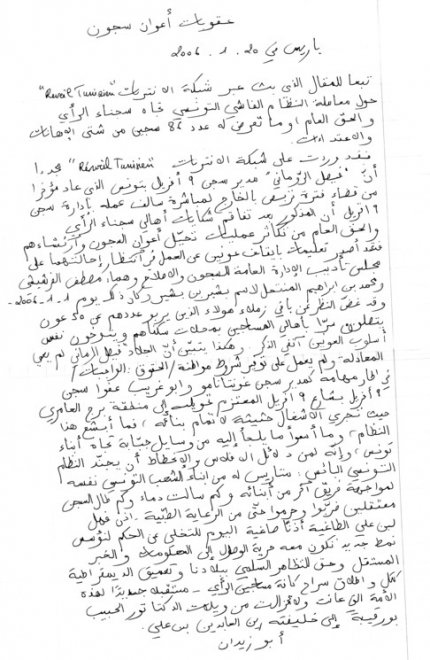 عقوبات أعوان سجون
باريس في 20 . 1 . 2006
تبعا للمقال الذي بث عبر شبكة الانترنات "Réveil Tunisien"
حول معاملة النظام الفاشي التونسي تجاه سجناء الرأي
والحق العام وما تعرض له عدد 86 سجين من شتى الإهانات
والاعتداءات
فقد وردت على شبكة الانترنات "Réveil Tunisien" مجددا
أنّ "فيصل الرّوماني" مدير سجن 9 أفريل بتونس الذي عاد مؤخرا
من قضاء فترة تربص بالخارج لمباشرة سالف عمله بإدارة سجن
9 أفريل أن المذكور بعد تفاقم شكايات أهالي سجناء الرأي
والحق العام من تكاثر عمليات تحيّل أعوان السجون وإرتشاءهم
فقد أصدر تعليمات بإيقاف عونين عن العمل في انتظار إحالتهما على
مجلس تأديب الإدارة العامة للسجون والإصلاح وهما: مصطفى
ومحمد بن ابراهيم المنتحل لاسم بشير بن بشير وكان ذلك يوم 1 - 1 - 2006 -
وقد غضّ النظر عن باقي زملاء هؤلاء الذين يربو عددهم عن 50 عون
يتصلون سرّا بأهالي المساجين بمحلات سكناهم ويتوخون نفس
أسلوب العونين آنفي الذكر. وهكذا يتبيّن أنّ الجلاد فيصل الرماني لم يعي
المعادلة ولم يعمل على توفير شروط مواطنة / الحقوق : الواجبات /
في إطار مهامه كمدير سجن غوينتانامو وأبو غريب عفوا سجن
9 أفريل بشارع 9 أفريل المعتزم تحويله إلى منطقة برج العامري
حيث تجري الأشغال حثيثة لإتمام بنائه ، فما أبشع هذا
النظام ، وما أسوأ ما يلجأ إليه من وسائل جبّانة تجاه أبناء
تونس ، وإنّه لمن دلائل الإفلاس والإنحطاط أن يجنّد النظام
التونسي البائس : متاريس له من أبناء الشعب التونسي نفسه
لمواجهة فريق آخر من أبنائه وكم سالت دماء وكم طال السجن
معتقلين ضربوا وحرموا حتّى من الرعاية الطبّية . إذن فهل
لبن علي الطاغية أذنا صاغية اليوم للتخلي عن الحكم لنؤسس
نمط جديد تكون معه حرية الوصول إلى المعلومات والخبر
المستقل وحق التظاهر السلمي ببلادنا وتعميق الديمقراطية
ككل وإطلاق سراح كافة مساجين الرأي - مستقبلا جديدا لهذه
الأمة التي عانت ولازالت من ويلات الدكتاتور الحبيب
بورقيبة إلى خليفته زين العابدين بن علي.
أبو زيدان